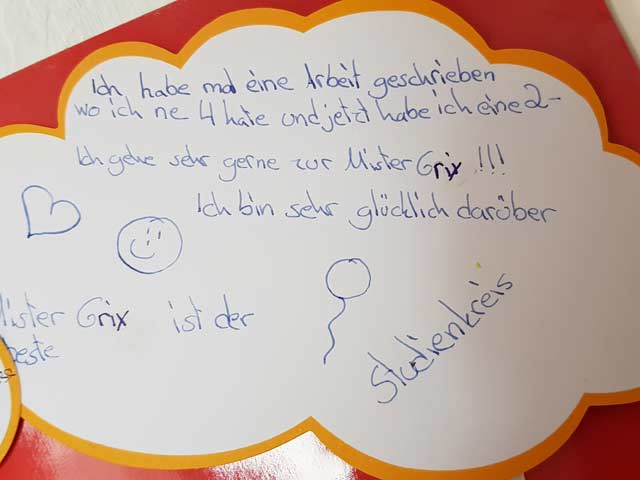 Ich habe mal eine Arbeit geschrieben
wo ich ne 4 hate und jetzt habe ich eine 2-
Ich gehe sehr gerne zur Mister Grix !!!
Ich bin sehr glücklich darüber
Mister Grix ist der
beste
Studienkreis